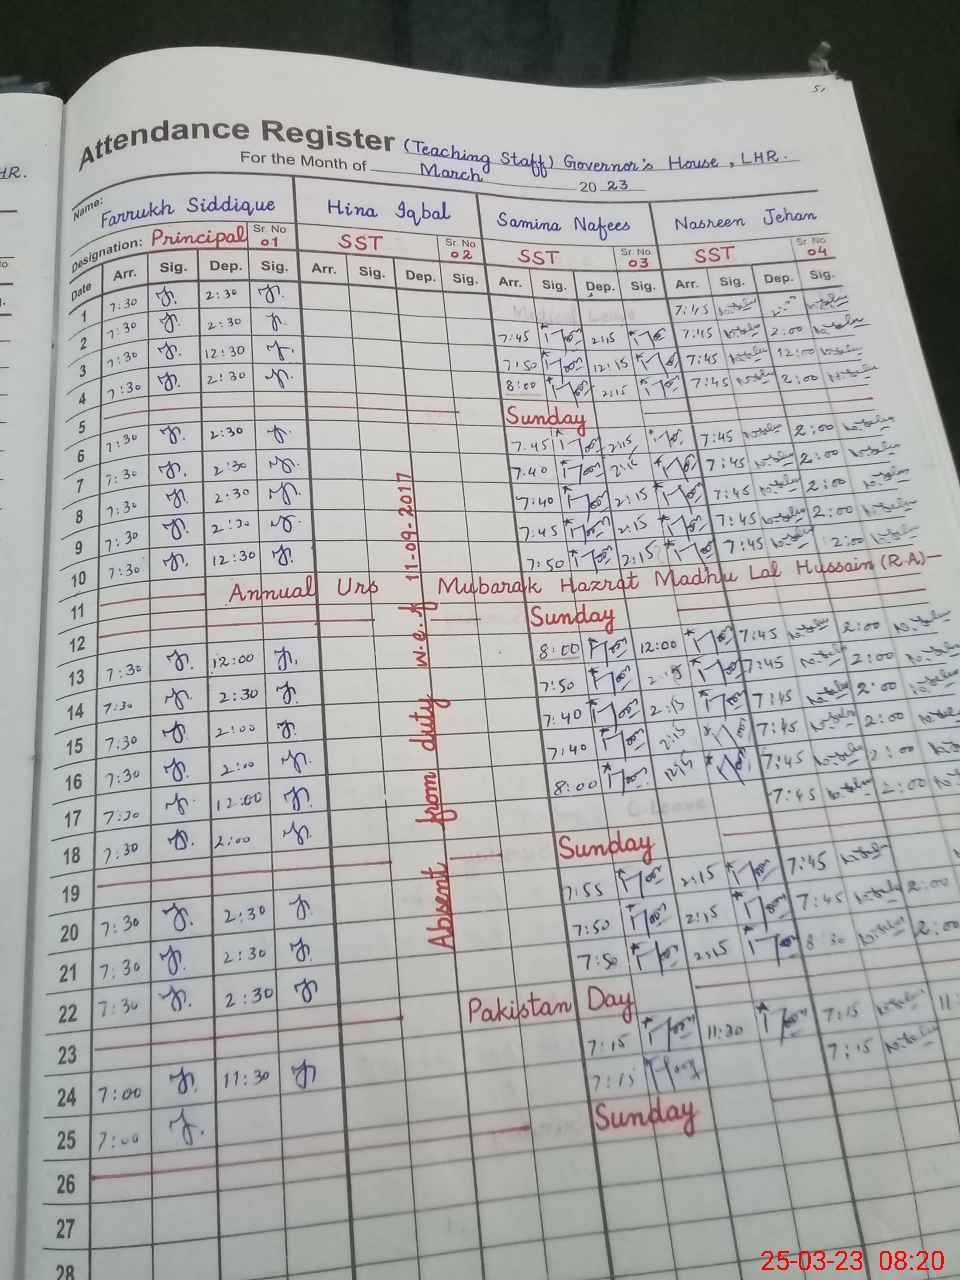 51
HR.
Attendance Register (Teaching Staff) Governor's House, LHR.
For the Month of March 20 23
Name: Farrukh Siddique Hina Iqbal Samina Nafees Nasreen Jehan
Designation: Principal Sr. No 01 SST Sr. No 02 SST Sr. No 03 SST Sr. No 04
Date Arr. Sig. Dep. Sig. Arr. Sig. Dep. Sig. Arr. Sig. Dep. Sig. Arr. Sig. Dep. Sig.
1 7:30 2:30 Medical Leave 7:45
2 7:30 2:30 7:45 2:15 7:45 2:00
3 7:30 12:30 7:50 12:15 7:45 12:00
4 7:30 2:30 8:00 2:15 7:45 2:00
5 Sunday
6 7:30 2:30 7:45 2:15 7:45 2:00
7 7:30 2:30 7:40 2:15 7:45 2:00
8 7:30 2:30 7:40 2:15 7:45 2:00
9 7:30 2:30 7:45 2:15 7:45 2:00
10 7:30 12:30 7:50 2:15 7:45 2:00
11 Annual Urs Mubarak Hazrat Madhu Lal Hussain (R.A)
12 Sunday
13 7:30 12:00 8:00 12:00 7:45 2:00
14 7:30 2:30 7:50 2:15 7:45 2:00
15 7:30 2:00 7:40 2:15 7:45 2:00
16 7:30 2:00 7:40 2:15 7:45 2:00
17 7:30 12:00 8:00 7:45 2:00
18 7:30 2:00 C-Leave 7:45 2:00
19 Sunday
20 7:30 2:30 7:55 2:15 7:45
21 7:30 2:30 7:50 2:15 7:45 2:00
22 7:30 2:30 7:50 2:15 8:30 2:00
23 Pakistan Day
24 7:00 11:30 7:15 11:30 7:15 11:
25 7:00 7:15 7:15
26 Sunday
27
28
Absent from duty w.e.f 11-09-2017
25-03-23 08:20